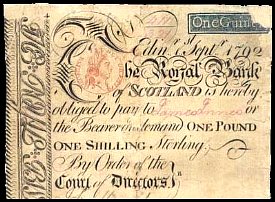 One Guinea
Edinr. Septr. 1792
The Royal Bank
of SCOTLAND is hereby
obliged to pay to James Innes or
the Bearer on demand ONE POUND
ONE SHILLING Sterling.
By Order of the
Court of Directors